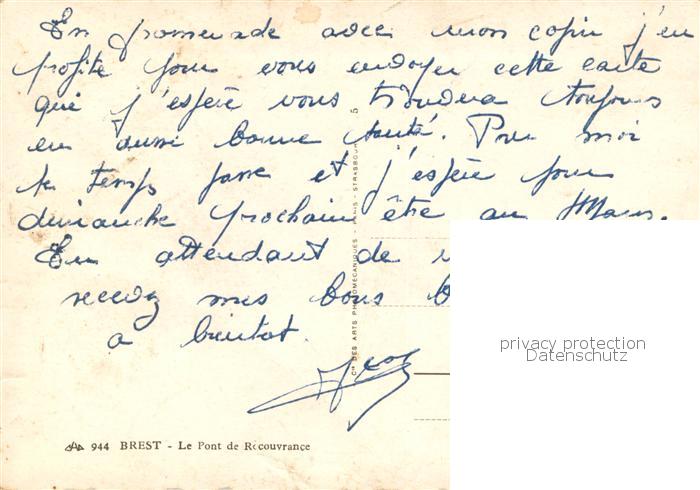 En promenade avec mon copin j'en
profite pour vous envoyer cette carte
que j'espère vous trouvera toujours
en aussi bonne santé. Pour moi
le temps passe et j'espère pour
dimanche prochain être au Mans.
En attendant de
recevez mes bons
a bientot.
privacy protection
Datenschutz
5
Cie DES ARTS PHOTOMÉCANIQUES - PARIS - STRASBOURG
944 BREST - Le Pont de Recouvrance